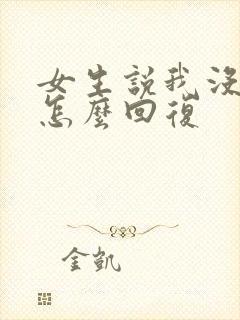 女生説我沒
怎麼回復
金凱